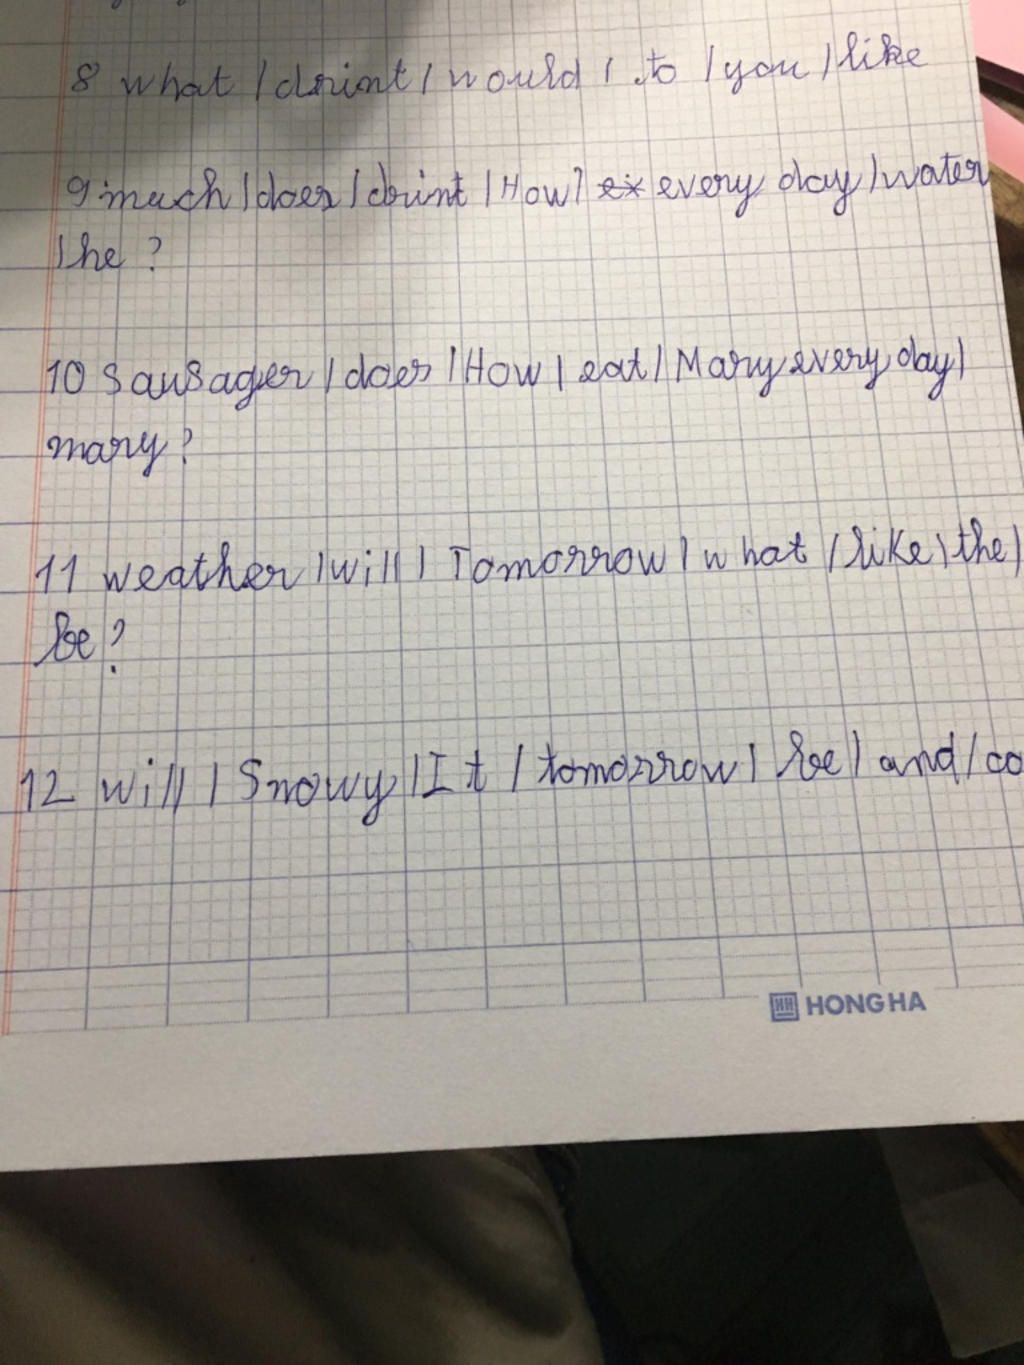 8 what / drint / would / to / you / like
9 much / does / drint / How / every day / water
/ he ?
10 Sausages / does / How / eat / Mary every day /
mary ?
11 weather / will / Tomorrow / what / like / the /
be ?
12 will / Snowy / It / tomorrow / be / and / co
HH HONG HA